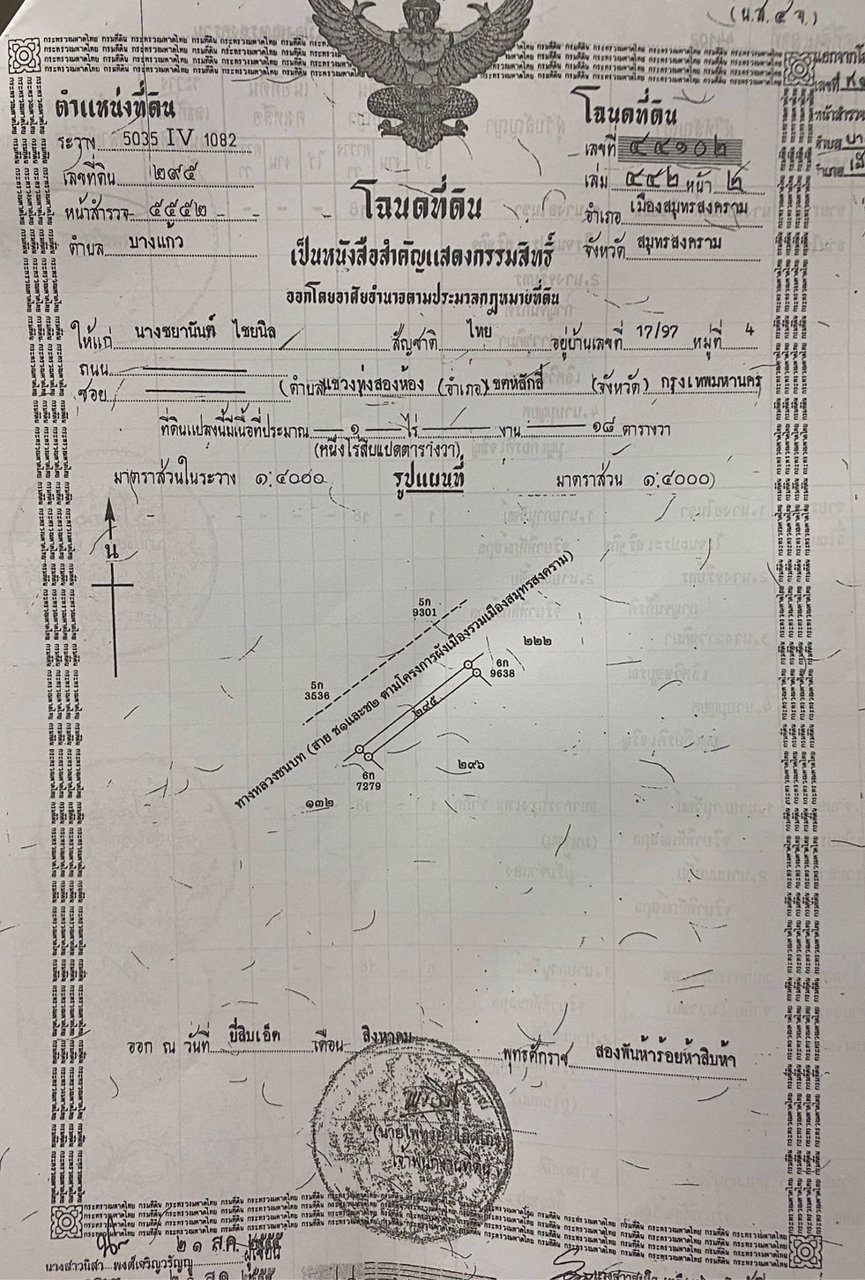 (น.ส.๔ จ.)
ตำแหน่งที่ดิน
ระวาง 5035 IV 1082
เลขที่ดิน ๒๙๕
หน้าสำรวจ ๕๕๕๒
ตำบล บางแก้ว
โฉนดที่ดิน
เลขที่ ๔๔๑๐๒
เล่ม ๔๔๒ หน้า ๒
อำเภอ เมืองสมุทรสงคราม
จังหวัด สมุทรสงคราม
โฉนดที่ดิน
เป็นหนังสือสำคัญแสดงกรรมสิทธิ์
ออกโดยอาศัยอำนาจตามประมวลกฎหมายที่ดิน
ให้แก่ นางชยานันท์ ไชยนิล สัญชาติ ไทย อยู่บ้านเลขที่ 17/97 หมู่ที่ 4
ถนน
ซอย (ตำบล) แขวงทุ่งสองห้อง (อำเภอ) เขตหลักสี่ (จังหวัด) กรุงเทพมหานคร
ที่ดินแปลงนี้มีเนื้อที่ประมาณ ๑ ไร่ งาน ๑๘ ตารางวา
(หนึ่งไร่สิบแปดตารางวา)
มาตราส่วนในระวาง ๑:๔๐๐๐ รูปแผนที่ มาตราส่วน ๑:๔๐๐๐
น
5ก
9301
5ก
3536
ทางหลวงชนบท (สาย ช๑และช๒ ตามโครงการผังเมืองรวมเมืองสมุทรสงคราม)
๒๒๒
6ก
9638
๒๙๕
๒๙๖
6ก
7279
๑๓๒
ออก ณ วันที่ ยี่สิบเอ็ด เดือน สิงหาคม พุทธศักราช สองพันห้าร้อยห้าสิบห้า
เจ้าพนักงานที่ดิน
๒๑ ส.ค. ๒๕๕๕
นางสาวนิสา พงศ์เจริญวรัญญู ผู้เขียน